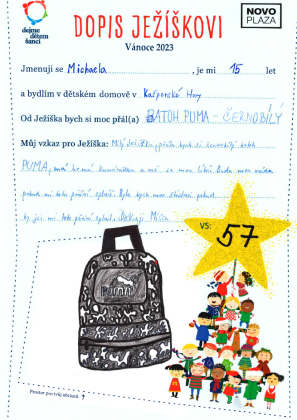 dejme
dětem
šanci
DOPIS JEŽÍŠKOVI
NOVO
PLAZA
Vánoce 2023
Jmenuji se Michaela, je mi 15 let
a bydlím v dětském domově v Kašperské Hory
Od Ježíška bych si moc přál(a) BATOH PUMA - ČERNOBÍLÝ
Můj vzkaz pro Ježíška: Milý Ježíšku, přála bych si černobílý batoh
PUMA, má kamarádka a moc se mi líbí. Budu moc ráda
pokud mi toto přání splníš. Byla bych moc šťastná pokud
by jsi mi toto přání splnil. Děkuji Míša
VS: 57
PUMA
Prostor pro tvůj obrázek ?